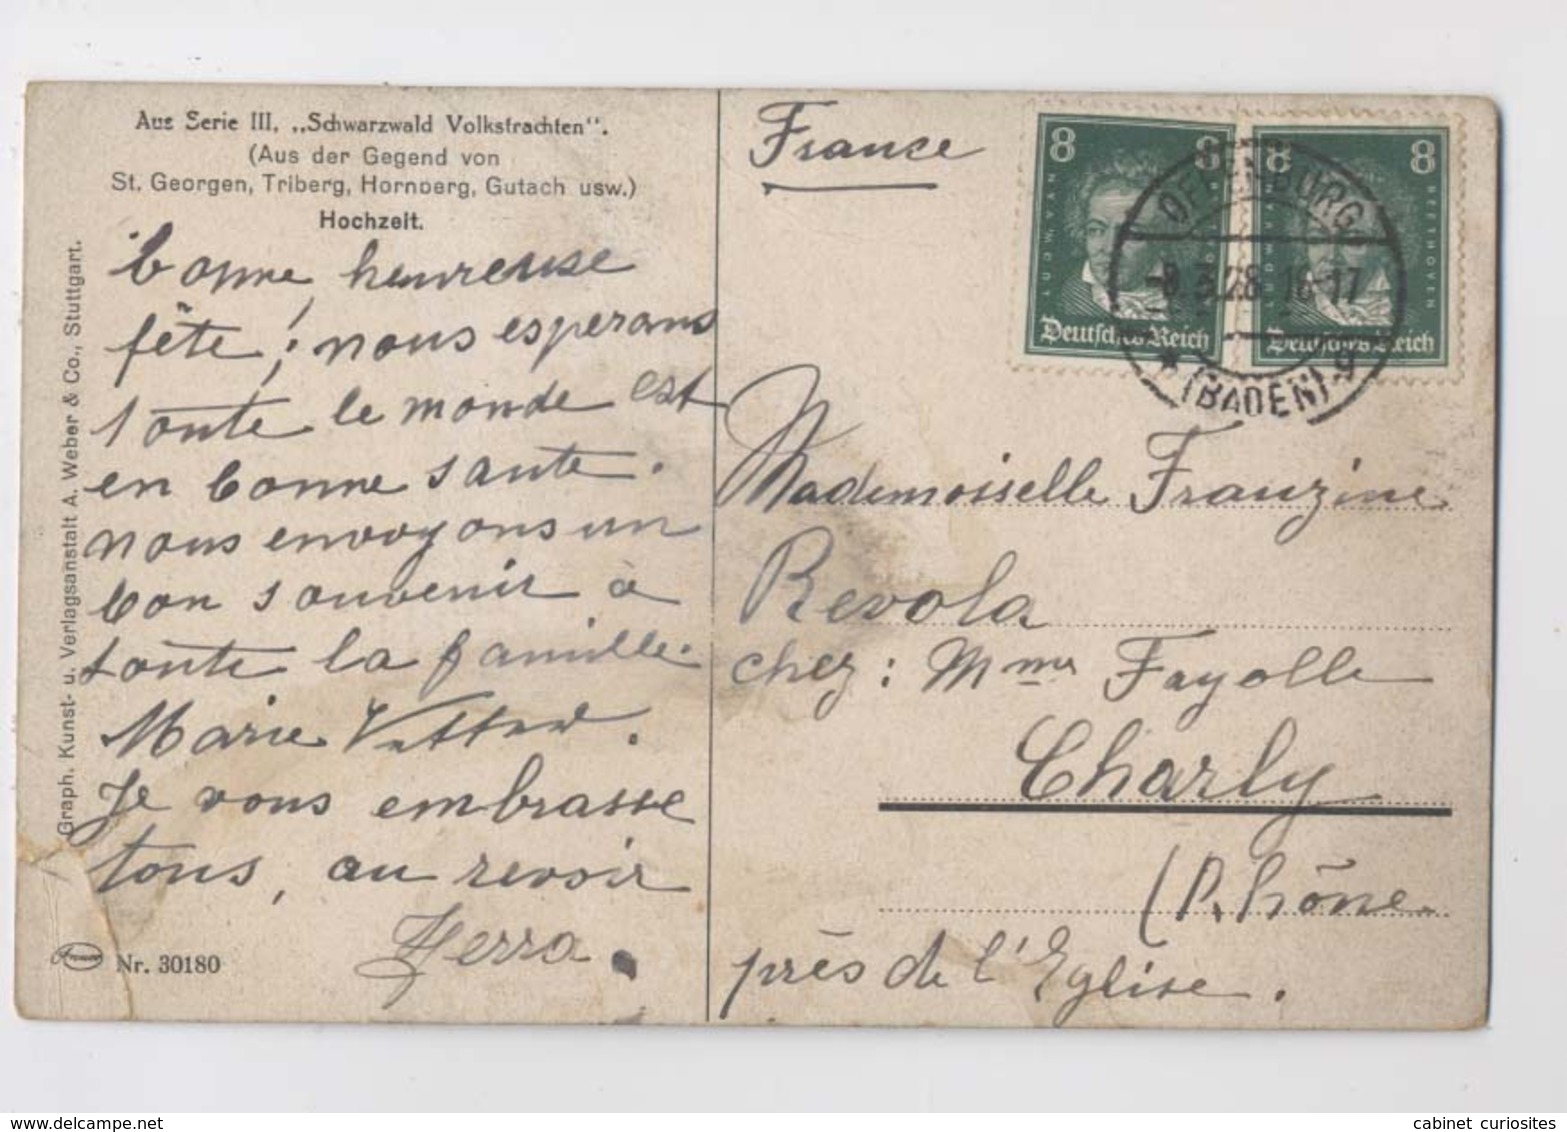 Aus Serie III, „Schwarzwald Volkstrachten“.
(Aus der Gegend von
St. Georgen, Triberg, Hornberg, Gutach usw.)
Hochzeit.
bonne heureuse
fête, nous esperons
toute le monde est
en bonne sante.
nous envoyons un
bon souvenir à
toute la famille.
Marie
Je vous embrasse
tous, au revoir
Nr. 30180
Graph. Kunst- u. Verlagsanstalt A. Weber & Co., Stuttgart.
France
8 8
LUDW. VAN
Deutsches Reich
8 8
BEETHOVEN
Deutsches Reich
OFFENBURG
-8.3.28 16-17
* (BADEN) g
Mademoiselle Franzine
Revola
chez: Mme Fayolle
Charly
(Rhône
près de l'Eglise.
www.delcampe.net
cabinet_curiosites